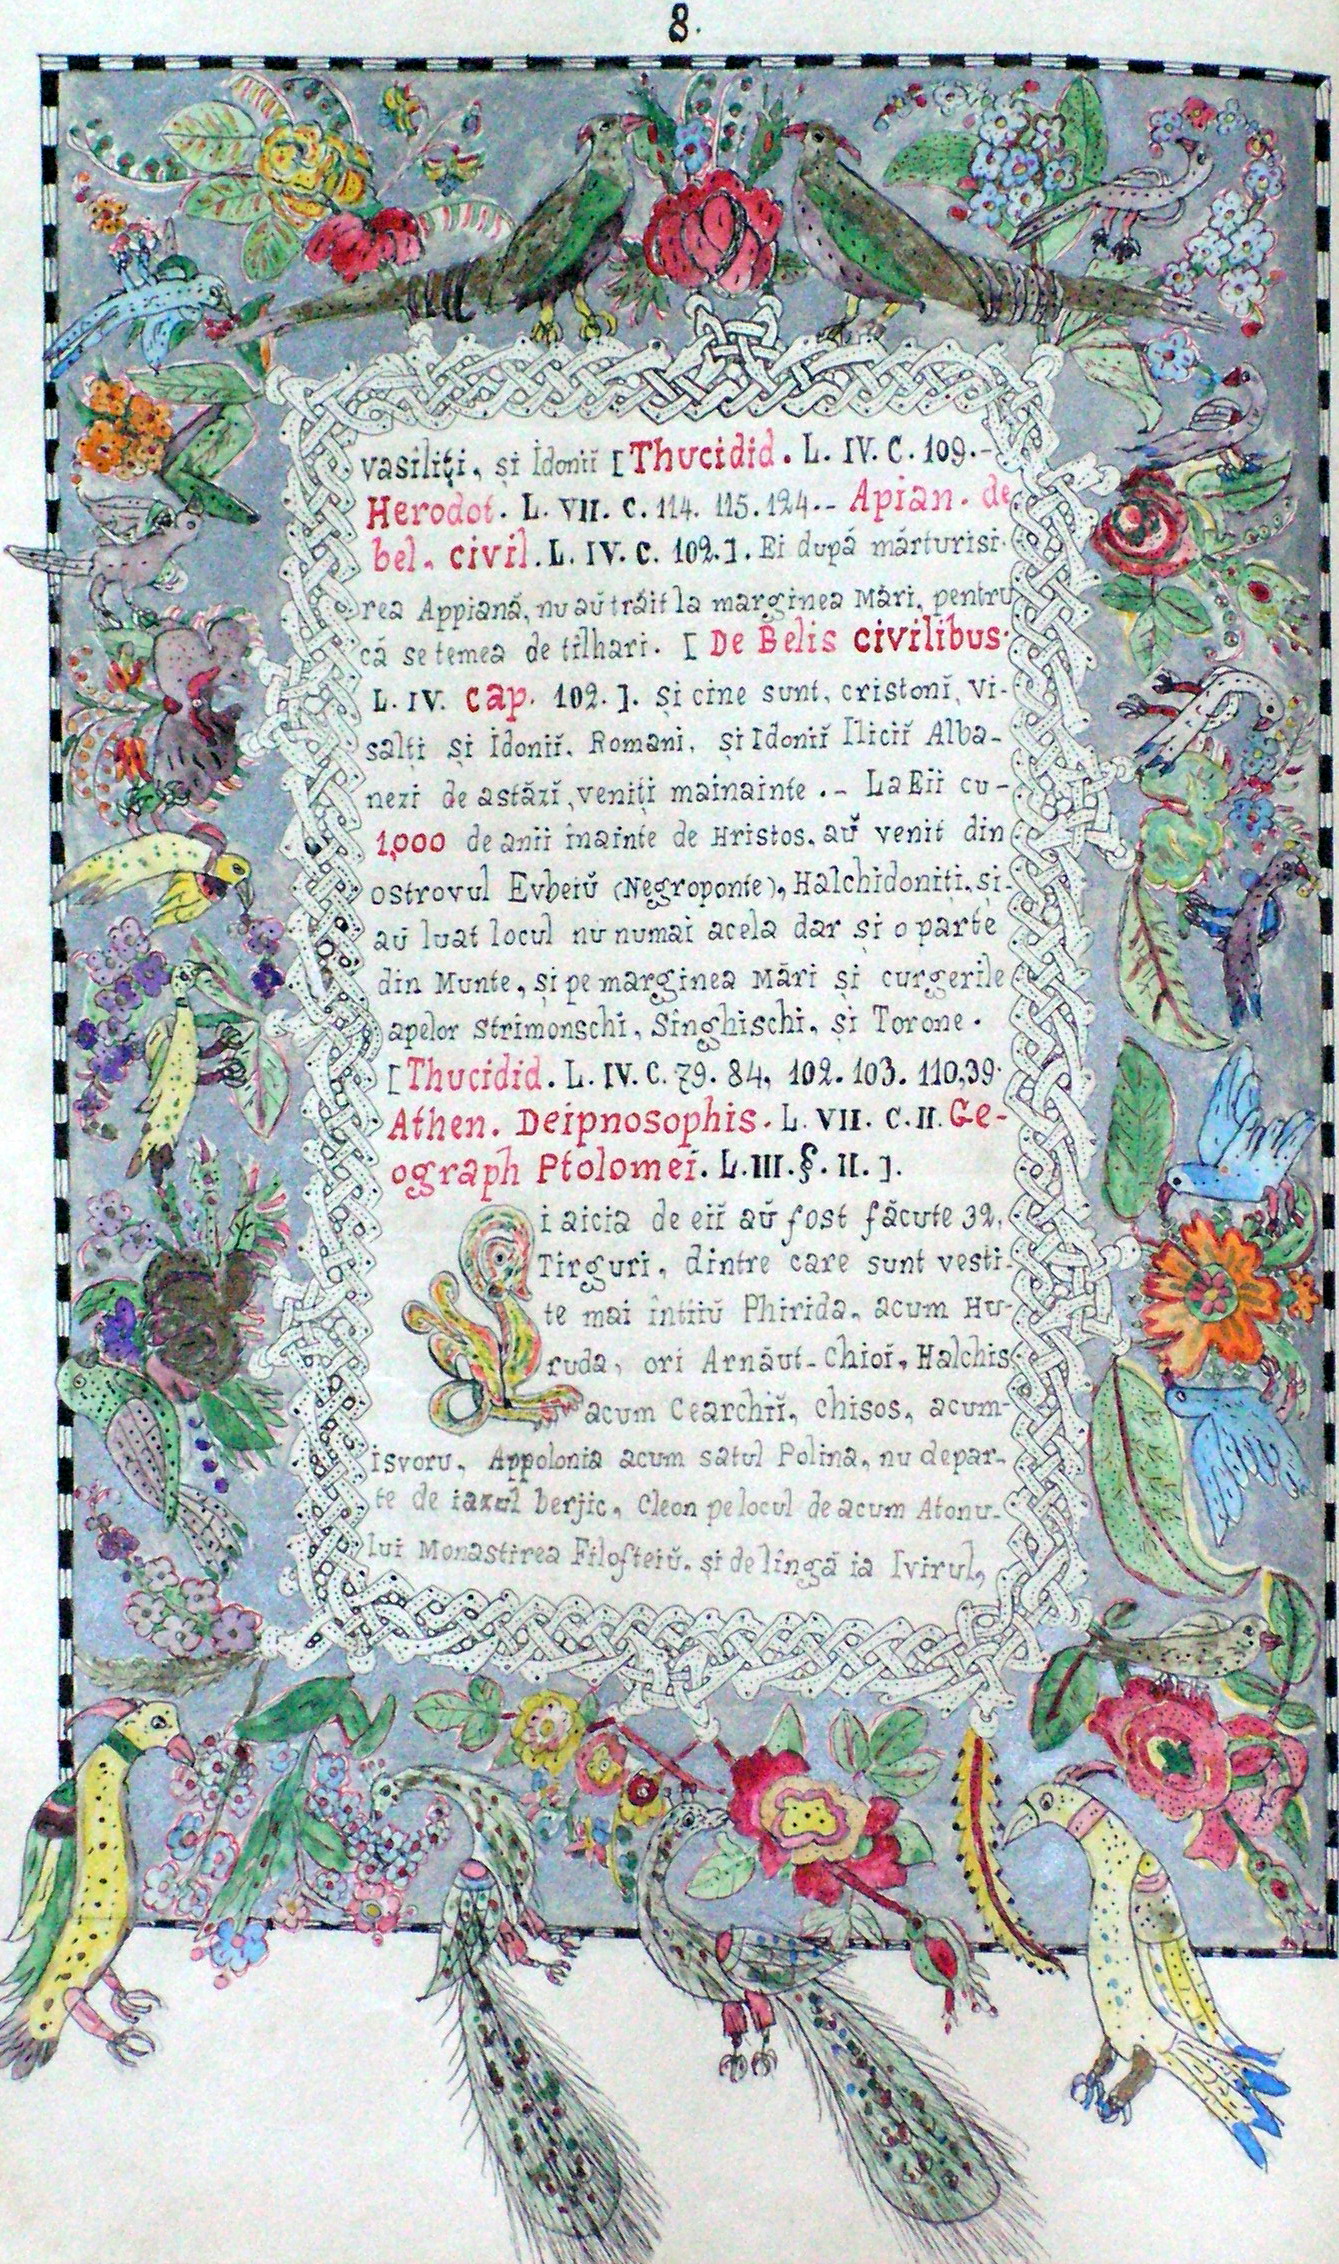 8.
vasiliți, și Idonii [Thucidid. L. IV. C. 109.-
Herodot. L. VII. C. 114. 115. 124.-. Apian. de
bel. civil. L. IV. C. 102.]. Ei după mărturisi-
rea Appiană, nu aŭ trăit la marginea Mări, pentru
că se temea de tîlhari. [De Belis civilibus.
L. IV. cap. 102.]. și cine sunt, cristonĭ, vi-
salți și Idoniĭ, Romani, și Idoniĭ Iliciĭ Alba-
nezi de astăzĭ, veniți mainainte .- La Eii cu-
1,000 de anii înainte de Hristos, aŭ venit din
ostrovul Evbeiŭ (Negroponte), Halchidoniți, și-
aŭ luat locul nu numai acela dar și o parte
din Munte, și pe marginea Mări și curgerile
apelor Strimonschi, Sînghischi, și Torone.
[Thucidid. L. IV. C. 79. 84, 102. 103. 110,39.
Athen. Deipnosophis. L. VII. C. II. Ge-
ograph Ptolomei. L. III. §. II.].
Și aicia de eiĭ aŭ fost făcute 32,
Tirguri, dintre care sunt vesti-
te mai întîiŭ Phirida, acum Hu-
ruda, ori Arnăut-Chioĭ, Halchis
acum Cearchiĭ, Chisos, acum-
Isvoru, Appolonia acum satul Polina, nu depar-
te de iazul berjic, Cleon pe locul de acum Atonu-
lui Monastirea Filofteiŭ, și de lîngă ia Ivirul,